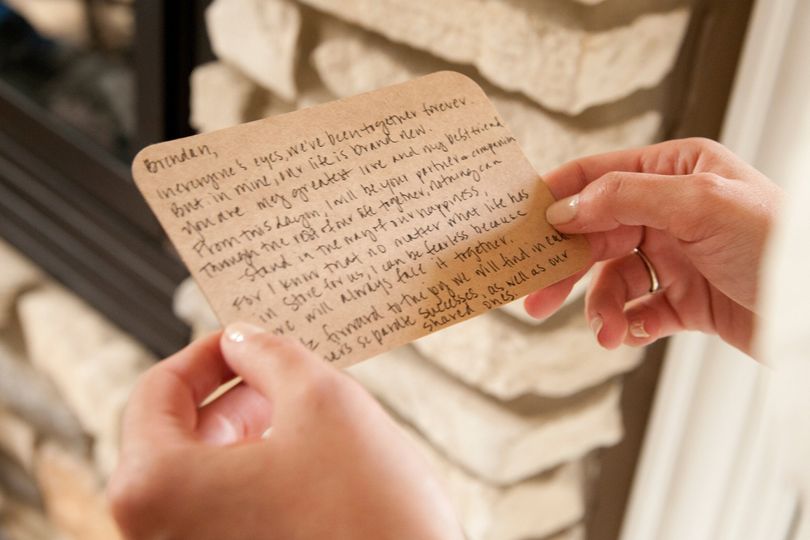 Brendan,
In everyone's eyes, we've been together forever
But in mine, our life is brand new.
You are my greatest love and my best friend
From this day on, I will be your partner + companion
Through the rest of our life together, nothing can
stand in the way of our happiness,
For I know that no matter what life has
in store for us, I can be fearless because
we will always face it together.
forward to the joy we will find in each
separate successes, as well as our
shared ones.